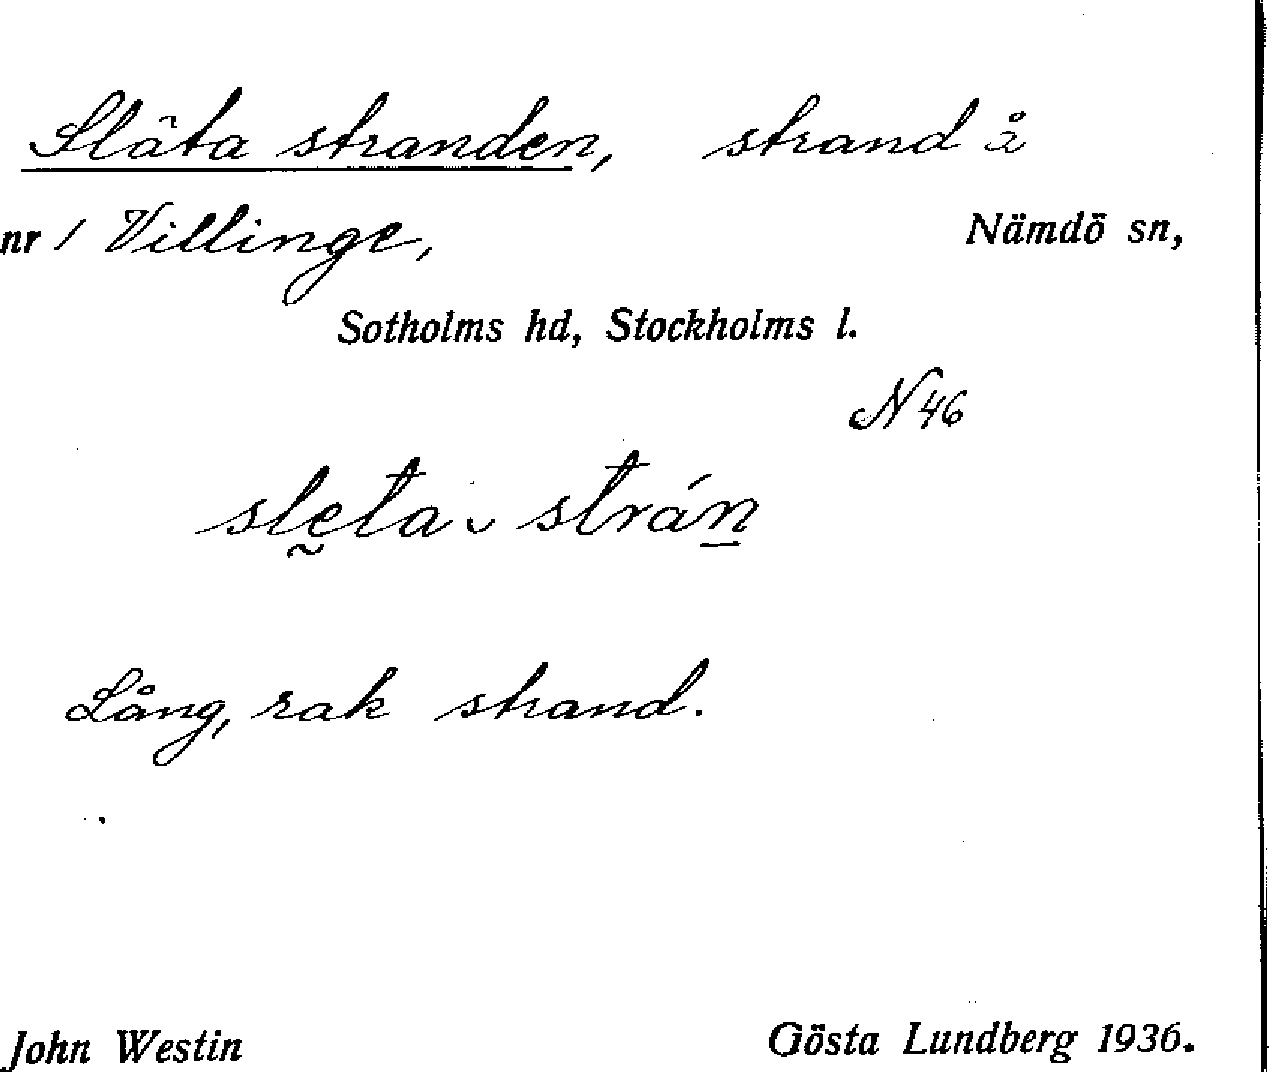 Släta stranden, strand å
nr 1 Villinge, Nämdö sn,
Sotholms hd, Stockholms l.
N 46
slḛta ̮ strán̲
Lång, rak strand.
John Westin Gösta Lundberg 1936.